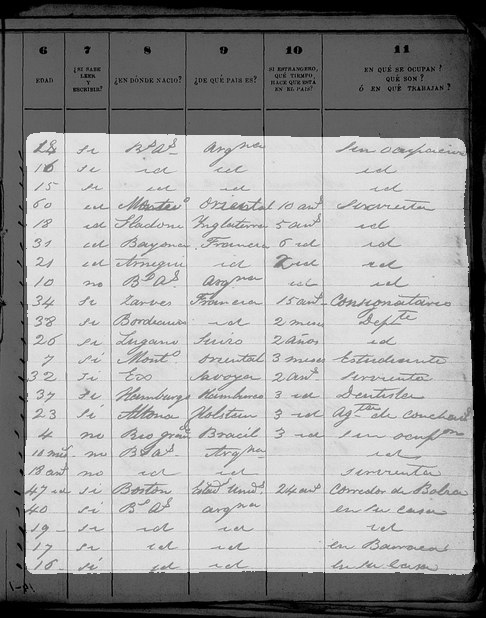 6 7 8 9 10 11
EDAD ¿SI SABE LEER Y ESCRIBIR? ¿EN DÓNDE NACIO? ¿DE QUÉ PAIS ES? SI ESTRANGERO, QUÉ TIEMPO, HACE QUE ESTÁ EN EL PAIS? EN QUÉ SE OCUPAN? QUÉ SON? Ó EN QUÉ TRABAJAN?
28 si Bs As Argna Sin ocupacion
16 si id id id
15 si id id id
60 id Montevo Oriental 10 ans Sirvienta
18 id Inglaterra 5 ans id
31 id Bayona Francia 6 id id
21 id id 2 id id
10 no Bs As Argna id id
34 si Francia 15 ans Consignatario
38 si Bordeaux id 2 meses Depte
26 si Lugano Suizo 2 años id
7 si Monto oriental 3 meses Estudiante
32 si Savoya 2 ans Sirvienta
37 si Hamburgo Hamburgo 3 id Dentista
23 si Altona Holstein 3 id Agte de
4 no Rio gran Bracil 3 id Sin ocupon
10 mes no Bs As Argna id
18 ans no id id sirvienta
47 id si Boston Estads Unids 24 ans Corredor de Bolsa
40 si Bs As argna en la casa
19 si id id id
17 si id id en Barraca
16 si id id en su casa